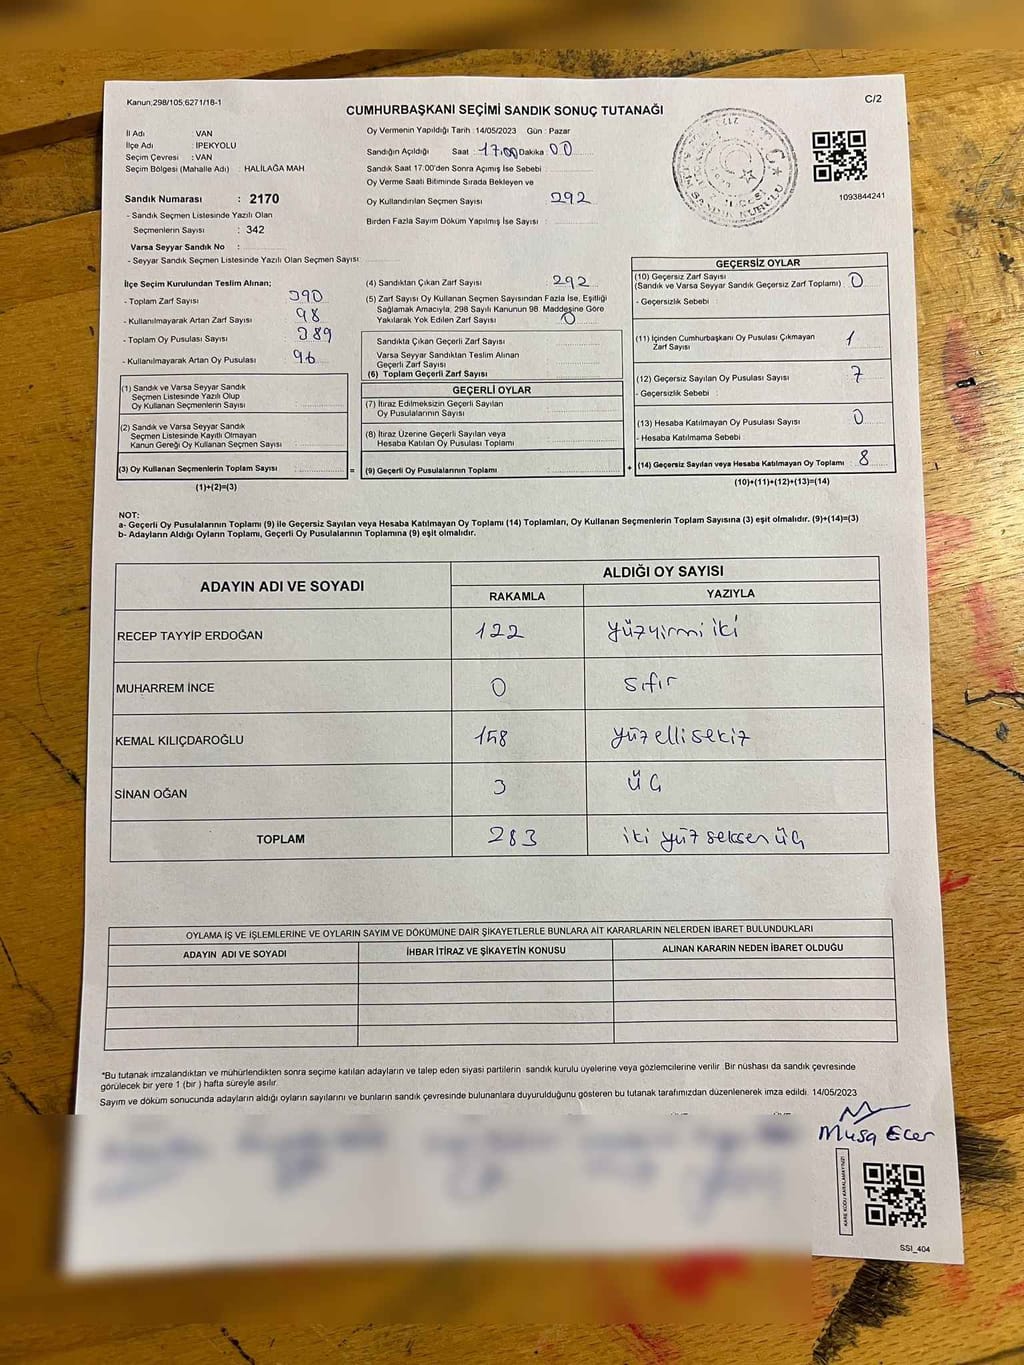 Kanun;298/105,6271/18-1
C/2
CUMHURBAŞKANI SEÇİMİ SANDIK SONUÇ TUTANAĞI
İl Adı : VAN
İlçe Adı : İPEKYOLU
Seçim Çevresi : VAN
Seçim Bölgesi (Mahalle Adı) : HALİLAĞA MAH
Sandık Numarası : 2170
- Sandık Seçmen Listesinde Yazılı Olan
Seçmenlerin Sayısı : 342
Varsa Seyyar Sandık No :
- Seyyar Sandık Seçmen Listesinde Yazılı Olan Seçmen Sayısı:
Oy Vermenin Yapıldığı Tarih : 14/05/2023 Gün : Pazar
Sandığın Açıldığı Saat : 17:00 Dakika 00
Sandık Saat 17:00'den Sonra Açımış İse Sebebi :
Oy Verme Saati Bitiminde Sırada Bekleyen ve
Oy Kullandırılan Seçmen Sayısı 292
Birden Fazla Sayım Döküm Yapılmış İse Sayısı :
1093844241
İlçe Seçim Kurulundan Teslim Alınan;
- Toplam Zarf Sayısı 390
- Kullanılmayarak Artan Zarf Sayısı 98
- Toplam Oy Pusulası Sayısı 389
- Kullanılmayarak Artan Oy Pusulası 96
(1) Sandık ve Varsa Seyyar Sandık
Seçmen Listesinde Yazılı Olup
Oy Kullanan Seçmenlerin Sayısı :
(2) Sandık ve Varsa Seyyar Sandık
Seçmen Listesinde Kayıtlı Olmayan
Kanun Gereği Oy Kullanan Seçmen Sayısı :
(3) Oy Kullanan Seçmenlerin Toplam Sayısı : =
(1)+(2)=(3)
(4) Sandıktan Çıkan Zarf Sayısı : 292
(5) Zarf Sayısı Oy Kullanan Seçmen Sayısından Fazla İse, Eşitliği
Sağlamak Amacıyla; 298 Sayılı Kanunun 98. Maddesine Göre
Yakılarak Yok Edilen Zarf Sayısı 0
Sandıkta Çıkan Geçerli Zarf Sayısı
Varsa Seyyar Sandıktan Teslim Alınan
Geçerli Zarf Sayısı
(6) Toplam Geçerli Zarf Sayısı
GEÇERLİ OYLAR
(7) İtiraz Edilmeksizin Geçerli Sayılan
Oy Pusulalarının Sayısı
(8) İtiraz Üzerine Geçerli Sayılan veya
Hesaba Katılan Oy Pusulaları Toplamı
(9) Geçerli Oy Pusulalarının Toplamı : +
GEÇERSİZ OYLAR
(10) Geçersiz Zarf Sayısı
(Sandık ve Varsa Seyyar Sandık Geçersiz Zarf Toplamı) : 0
- Geçersizlik Sebebi :
(11) İçinden Cumhurbaşkanı Oy Pusulası Çıkmayan
Zarf Sayısı 1
(12) Geçersiz Sayılan Oy Pusulası Sayısı 7
- Geçersizlik Sebebi :
(13) Hesaba Katılmayan Oy Pusulası Sayısı 0
- Hesaba Katılmama Sebebi
(14) Geçersiz Sayılan veya Hesaba Katılmayan Oy Toplamı : 8
(10)+(11)+(12)+(13)=(14)
NOT:
a- Geçerli Oy Pusulalarının Toplamı (9) ile Geçersiz Sayılan veya Hesaba Katılmayan Oy Toplamı (14) Toplamları, Oy Kullanan Seçmenlerin Toplam Sayısına (3) eşit olmalıdır. (9)+(14)=(3)
b- Adayların Aldığı Oyların Toplamı, Geçerli Oy Pusulalarının Toplamına (9) eşit olmalıdır.
ADAYIN ADI VE SOYADI
ALDIĞI OY SAYISI
RAKAMLA YAZIYLA
RECEP TAYYİP ERDOĞAN 122 yüzyirmi iki
MUHARREM İNCE 0 sıfır
KEMAL KILIÇDAROĞLU 158 yüz elli sekiz
SİNAN OĞAN 3 üç
TOPLAM 283 iki yüz seksen üç
OYLAMA İŞ VE İŞLEMLERİNE VE OYLARIN SAYIM VE DÖKÜMÜNE DAİR ŞİKAYETLERLE BUNLARA AİT KARARLARIN NELERDEN İBARET BULUNDUKLARI
ADAYIN ADI VE SOYADI İHBAR İTİRAZ VE ŞİKAYETİN KONUSU ALINAN KARARIN NEDEN İBARET OLDUĞU
*Bu tutanak imzalandıktan ve mühürlendikten sonra seçime katılan adayların ve talep eden siyasi partilerin sandık kurulu üyelerine veya gözlemcilerine verilir. Bir nüshası da sandık çevresinde
görülecek bir yere 1 (bir ) hafta süreyle asılır.
Sayım ve döküm sonucunda adayların aldığı oyların sayılarını ve bunların sandık çevresinde bulunanlara duyurulduğunu gösteren bu tutanak tarafımızdan düzenlenerek imza edildi. 14/05/2023
Musa Ecer
KARE KODU KARALAMAYINIZ!
SSI_404